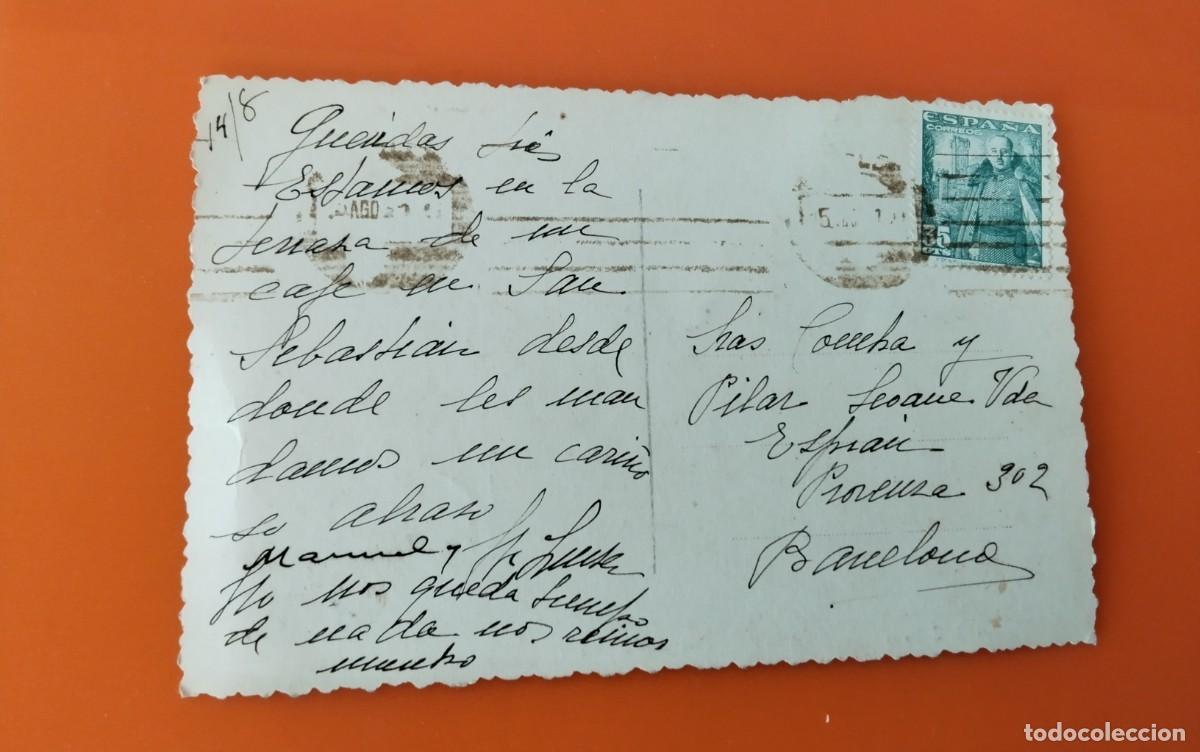 14/8
Queridas tías
Estamos en la
terraza de un
cafe en San
Sebastián desde
donde les man
damos un cariño
so abrazo
Manuel y Mª Luisa
No nos queda tiempo
de nada nos reimos
mucho
ESPAÑA
CORREOS
AGO
5
Sras Concha y
Pilar Seoane Vda
Espriu
Provenza 302
Barcelona
todocoleccion